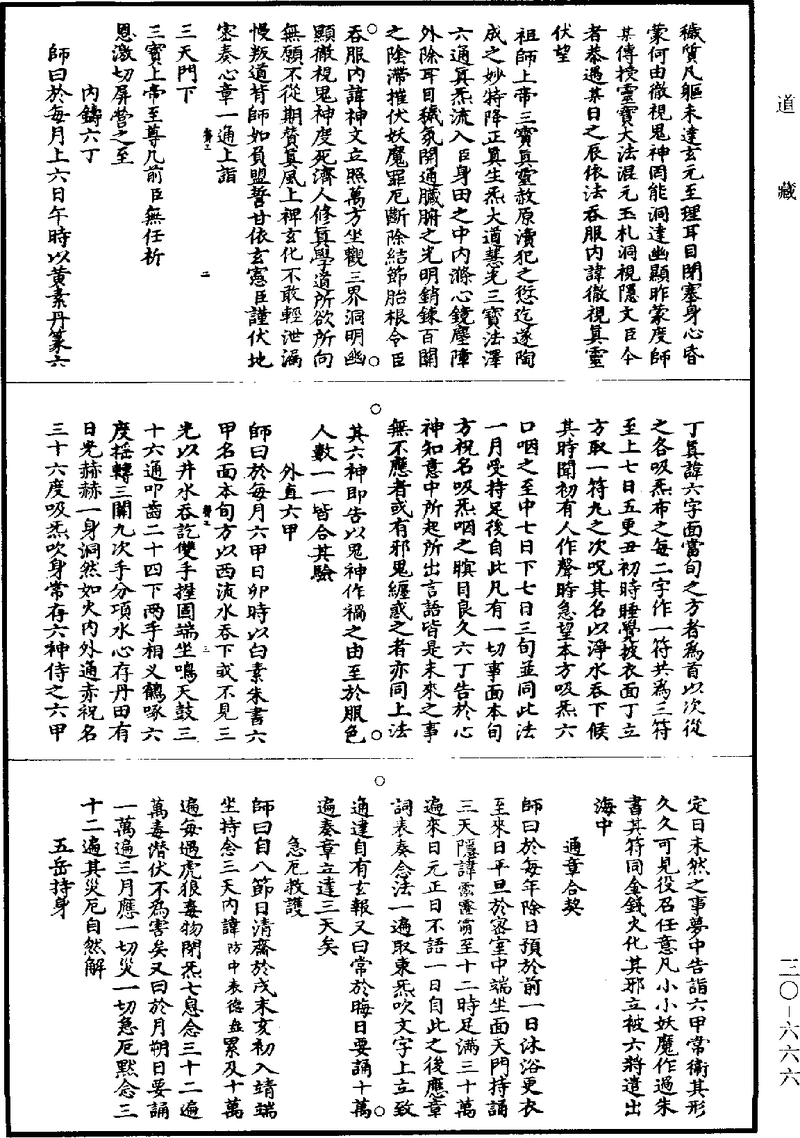 道藏
穢質凡軀未達玄元至理耳目閉塞身心昏
蒙何由徹視鬼神罔能洞達幽顯昨蒙度師
某傳授靈寶大法混元玉札洞視隱文臣今
者恭遇某日之辰依法吞服内諱徹視真靈
伏望
祖師上帝三寶真靈赦原瀆犯之愆迄遂陶
成之妙特降正真生炁大道慧光三寶法澤
六通真炁流入臣身田之中内滌心鏡塵障
外除耳目穢氛開通臟腑之光明銷鍊百關
之陰滯摧伏妖魔罪厄斷除結節胎根令臣
吞服内諱神文立照萬方坐觀三界洞明幽
顯徹視鬼神度死濟人修真學道所欲所向
無願不從期贊真風上裨玄化不敢輕泄漏
慢叛道背師如負盟誓甘依玄憲臣謹伏地
密奏心章一通上詣
三天門下
三寶上帝至尊几前臣無任祈
恩激切屏營之至
内鑄六丁
師曰於每月上六日午時以黄素丹篆六
丁真諱六字面當旬之方者為首以次從
之各吸炁布之每二字作一符共為三符
至上七日五更丑初時睡覺披衣面丁立
方取一符九之次呪其名以淨水吞下候
其時聞初有人作聲時急望本方吸炁六
口咽之至中七日下七日三旬並同此法
一月受持足後自此凡有一切事面本旬
方祝名吸炁咽之瞑目良久六丁告於心
神知意中所起所出言語皆是未來之事
無不應者或有邪鬼纏惑之者亦同上法
其六神即告以鬼神作禍之由至於服色
人數一一皆合其驗
外直六甲
師曰於每月六甲日卯時以白素朱書六
甲名面本旬方以西流水吞下或不見三
光以井水吞訖雙手握固端坐鳴天鼓三
十六通叩齒二十四下兩手相义鶴啄六
度摇轉三關九次手分項水心存丹田有
日光赫赫一身洞然如火内外通赤祝名
三十六度吸炁吹身常存六神侍之六甲
定日未然之事夢中告詣六甲常衛其形
久久可見役召任意凡小小妖魔作過朱
書其符同金錢火化其邪立被六將遣出
海中
通章合契
師曰於每年除日預於前一日沐浴更衣
至來日平旦於密室中端坐面天門持誦
三天隱諱至十二時足滿三十萬
遍來日元正日不語一日自此之後應章
詞表奏念法一遍取東炁吹文字上立致
通達自有玄報又曰常於晦日要誦十萬
遍奏章立達三天矣
急厄救護
師曰自八節日清齋於戌末亥初入靖端
坐持念三天内諱累及十萬
遍每遇虎狼毒物閉炁七息念三十二遍
萬毒潛伏不為害矣又曰於月朔日要誦
一萬遍三月應一切災一切急厄默念三
十二遍其災厄自然解
五岳持身
三〇-六六六